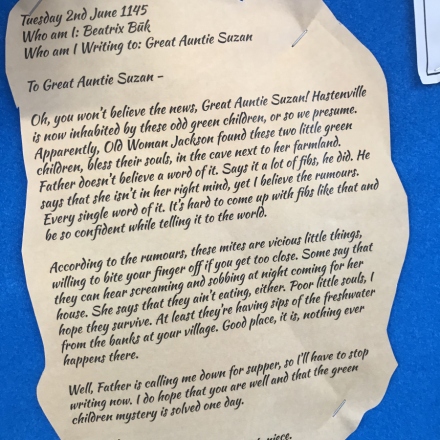 Tuesday 2nd June 1145
Who am I: Beatrix Bük
Who am I Writing to: Great Auntie Suzan
To Great Auntie Suzan –
Oh, you won't believe the news, Great Auntie Suzan! Hastenville
is now inhabited by these odd green children, or so we presume.
Apparently, Old Woman Jackson found these two little green
children, bless their souls, in the cave next to her farmland.
Father doesn't believe a word of it. Says it a lot of fibs, he did. He
says that she isn't in her right mind, yet I believe the rumours.
Every single word of it. It's hard to come up with fibs like that and
be so confident while telling it to the world.
According to the rumours, these mites are vicious little things,
willing to bite your finger off if you get too close. Some say that
they can hear screaming and sobbing at night coming for her
house. She says that they ain't eating, either. Poor little souls, I
hope they survive. At least they're having sips of the freshwater
from the banks at your village. Good place, it is, nothing ever
happens there.
Well, Father is calling me down for supper, so I'll have to stop
writing now. I do hope that you are well and that the green
children mystery is solved one day.
niece.